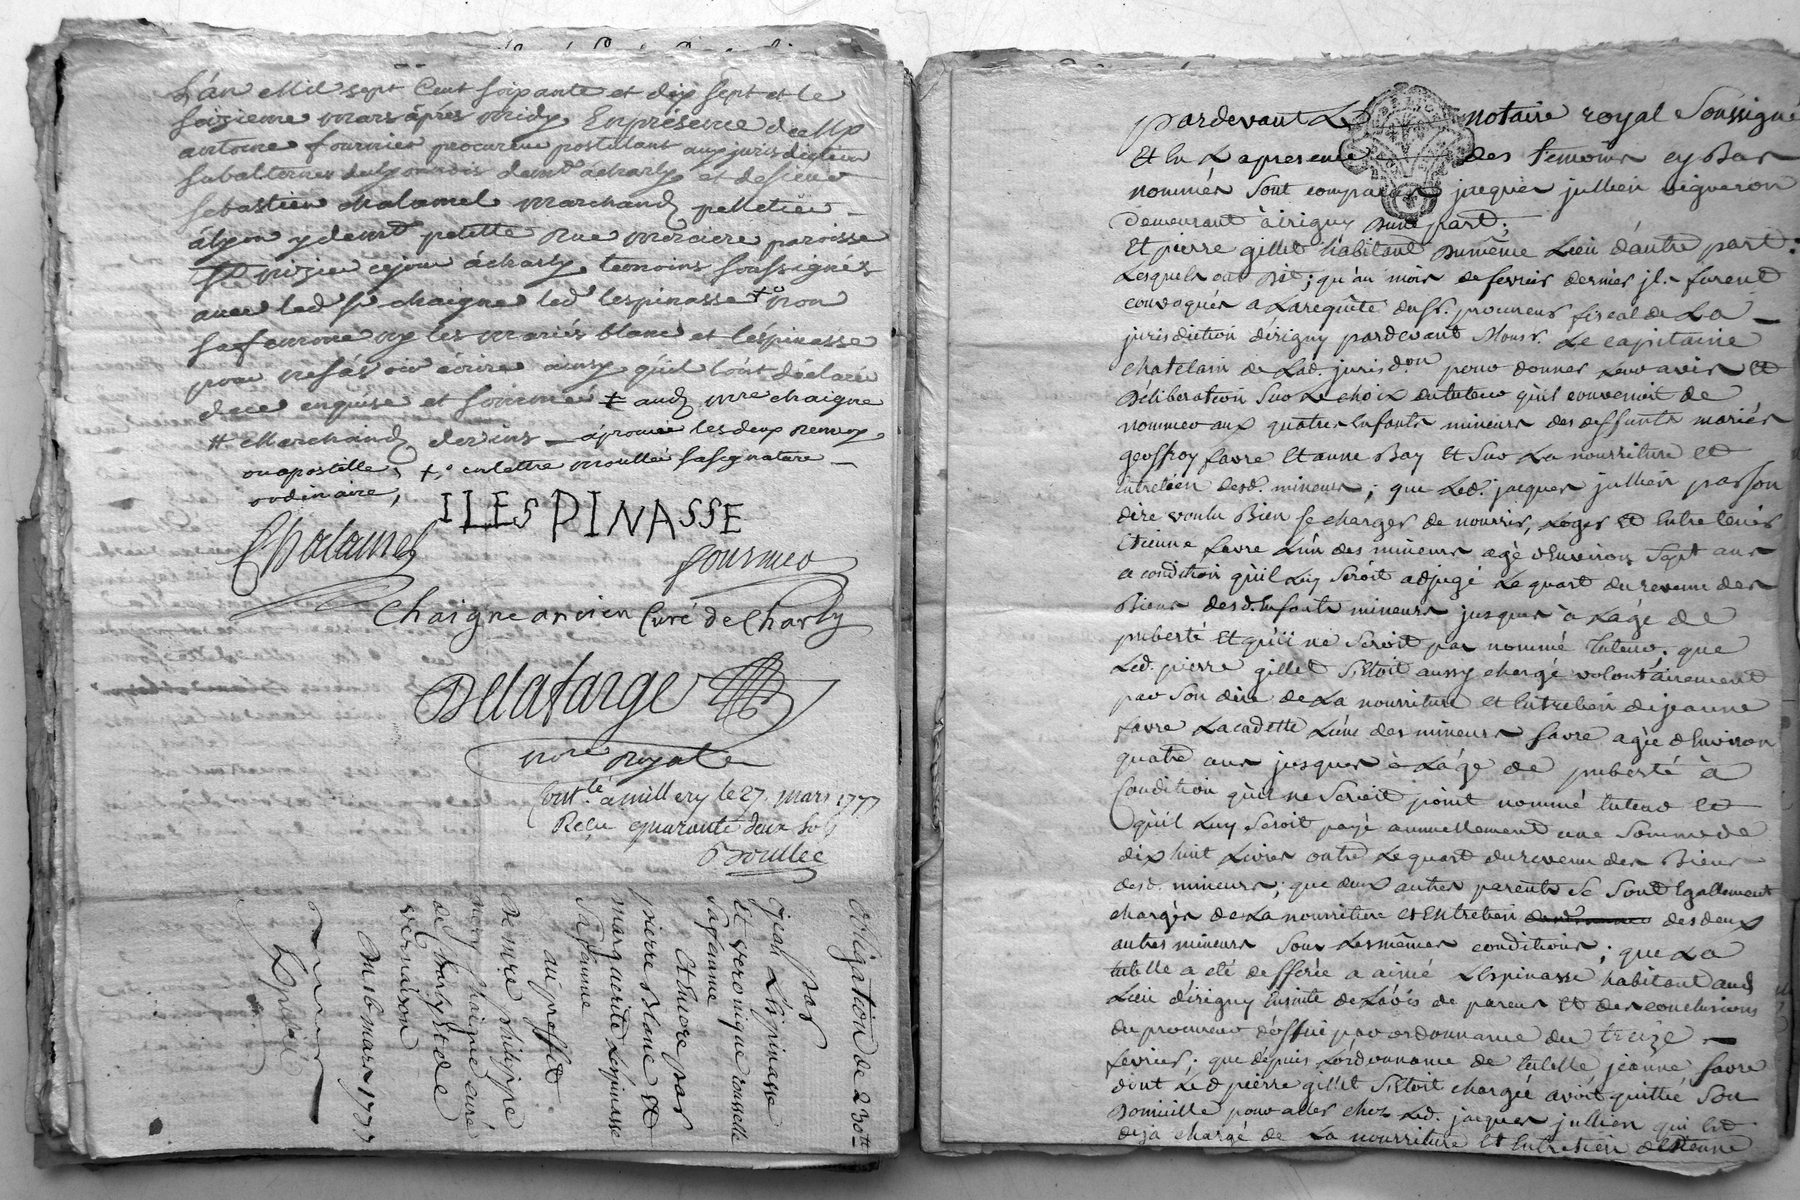 L'an Mil sept Cent soixante et dix sept et le
seizieme mars aprés midy En presence de
antoine fournier procureur postillant aux jurisdiction
subalternes du lyonnois demt. à charly et de sieur
sebastien chalamel marchand pelletier
à lyon y demt. petitte Rue merciere paroisse
St nizier ce jour à charly temoins soussignés
avec led. sr. chaigne led. lespinasse non
sa femme ny les mariés blanc et lespinasse
pour ne sávoir écrire ainsy qu'il l'ont déclaré
de ce enquise et sommé ‡ aud. mre chaigne
# Marchand de vins — aprouvé les deux renvoy
ou apostille, +° en lettre moullée sa signature —
ordinaire,
I LESPINASSE
Chalamel
fournier
Chaigne ancien Curé de Charly
Delafarge
nore royal
Contlé. à millery le 27. mars 1777
Reçu quarante deux sols
Boullee
Obligation de 230tt
par
jean Lespinasse
Et veronique rousselle
sa femme
Et encore par
pierre Blanc et
marguerite Lespinasse
sa femme
au proffit
de mre philippe
chaigne curé
de Charly et de
vernaison
Du 16 mars 1777
Expédié
pardevant Le notaire royal soussigné
Et En La presence des temoins cy Bas
nommés sont comparus jacques jullien vigneron
demeurant à irigny d'une part;
Et pierre gillet habitant du même Lieu d'autre part:
Lesquels ont Dit; qu'au mois de fevrier dernier jls furent
convoqués a La requête du sr. procureur fiscal de La —
jurisdiction d'irigny pardevant Monsr. Le capitaine
chatelain de Lad. jurisd.on pour donner Leur avis Et
Déliberation sur Le choix du tuteur qu'il convenoit de
nommer aux quatre Enfants mineurs des deffunts mariés
geoffroy favre Et anne Bay Et sur La nourriture Et
Entretien desd. mineurs; que Led. jacques jullien par son
dire voulu Bien se charger de nourrir, Loger Et Entretenir
Etienne favre L'un des mineurs agé d'Environ sept ans
a condition qu'il Luy seroit adjugé Le quart du revenu des
Biens desd. Enfants mineurs jusques à L'age de
puberté Et qu'il ne seroit pas nommé tuteur. que
Led. pierre gillet s'Etoit aussy chargé volontairement
par son dire de La nourriture et Entretien de jeanne
favre La cadette L'une des mineurs favre agée d'Environ
quatre ans jusques à L'age de puberté à
Condition qu'il ne seroit point nommé tuteur Et
qu'il Luy seroit payé annuellement une somme de
dix huit Livres outre Le quart du revenu des Biens
desd. mineurs; que deux autres parents se sont Egallement
chargés de La nourriture et Entretien des deux
autres mineurs sous Les mêmes conditions; que La
tutelle a eté defferée a aimé Lespinasse habitant aud.
Lieu d'irigny Ensuite de L'avis de parens Et des conclusions
du procureur d'office par ordonnance du treize —
fevrier; que depuis L'ordonnance de tutelle jeanne favre
dont Led pierre gillet s'Etoit chargée avoit quitté son
Domicille pour aller chez Led. jacques jullien qui Est
deja chargé de La nourriture Et Entretien d'Etienne